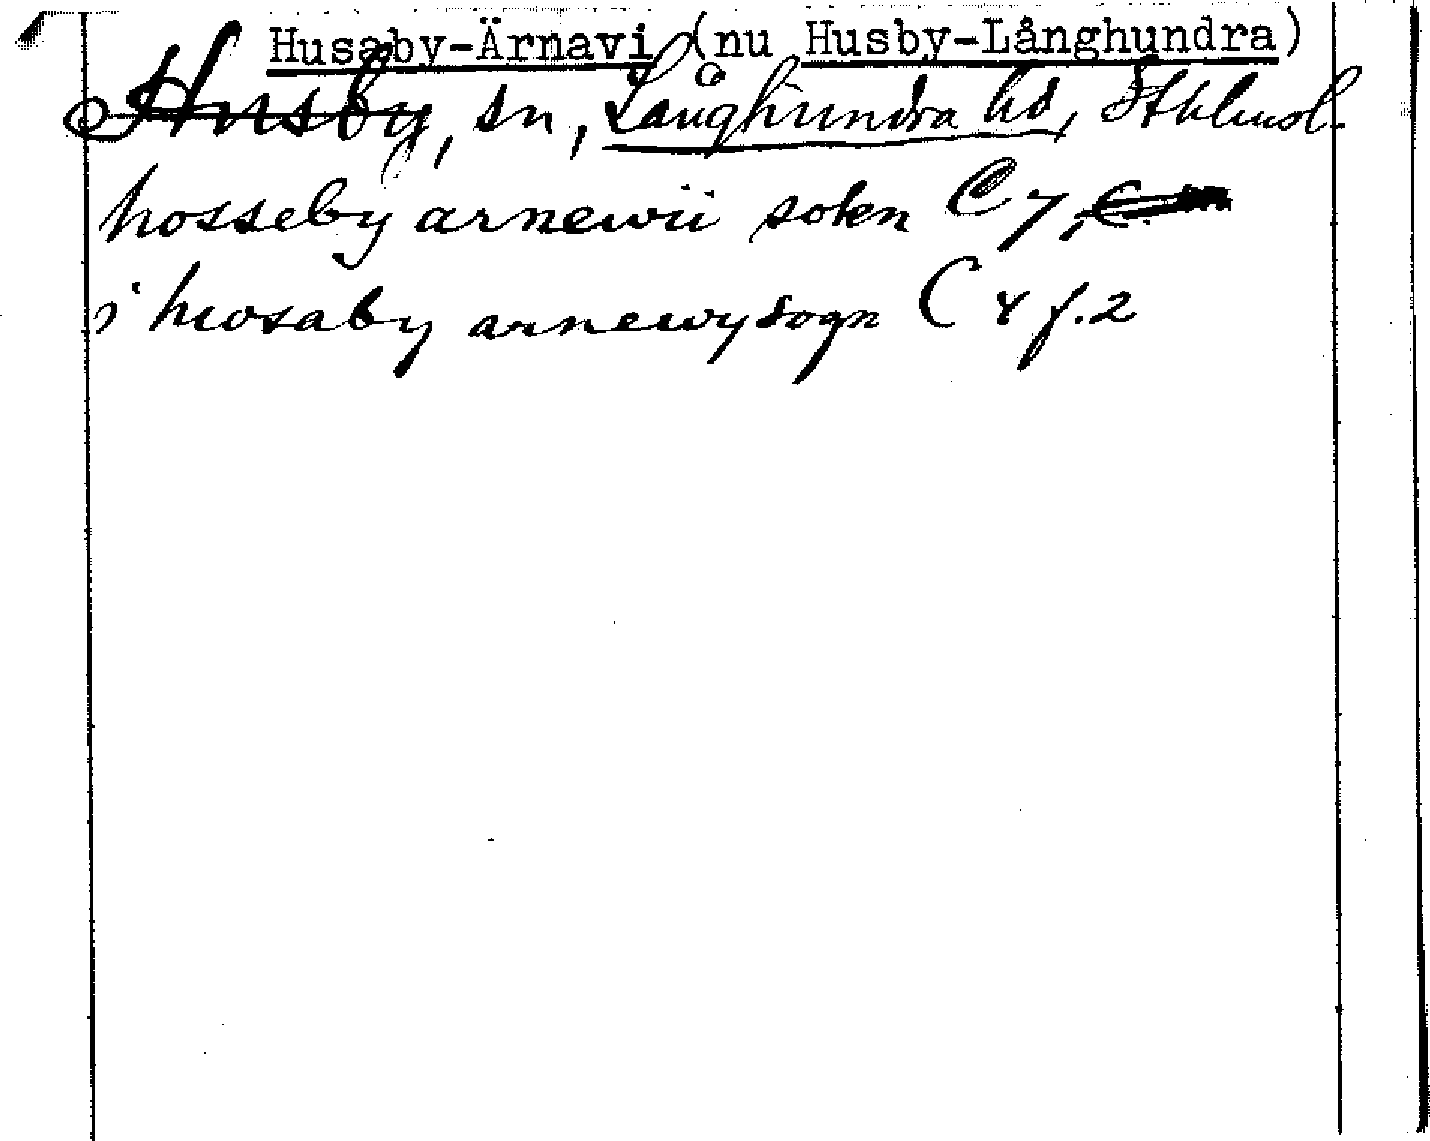 Husaby-Ärnavi (nu Husby-Långhundra)
Husby, sn, Långhundra hd, Sthlmsl.
hosseby arnewii sokn C 7,
i hwsaby arnewysogn C 4 f. 2